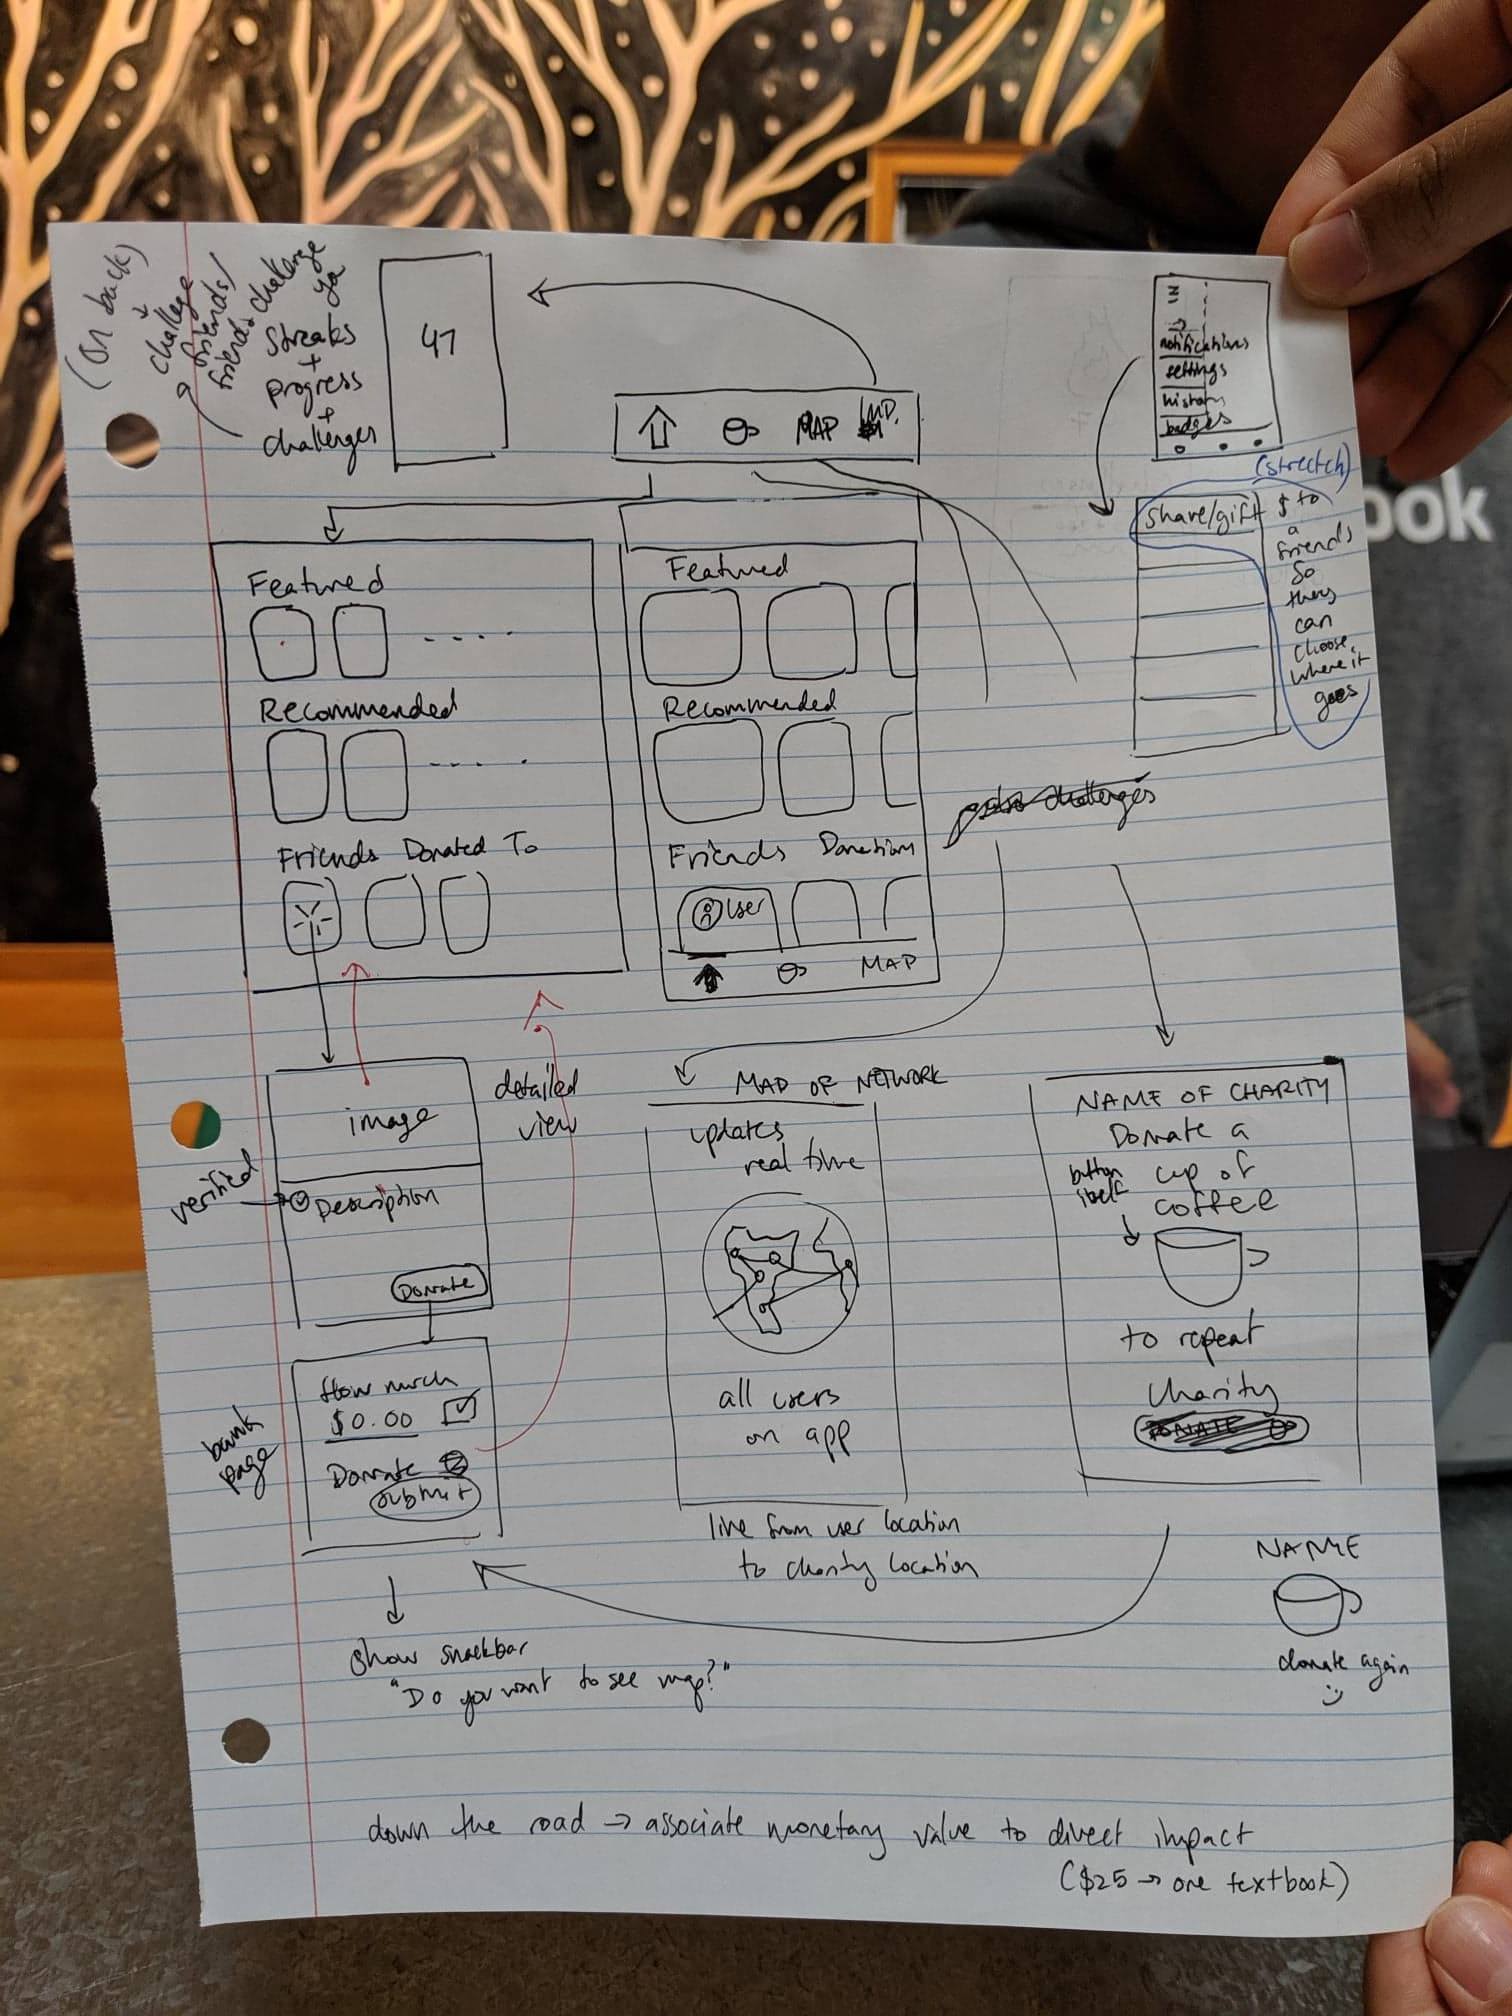 (on back)
challege
friends/
friends challenge
ya
Streaks
+
progress
+
challenges
47
MAP
notifications
settings
history
badges
(stretch)
share/gift
$ to
a
friends
so
they
can
choose
where it
goes
book
Featured
Recommended
Friends Donated To
Featured
Recommended
Friends Donations
User
MAP
challenges
image
detailed
view
verified
Description
Donate
bank
page
How much
$0.00
Donate
submit
MAP OF NETWORK
updates
real time
all users
on app
live from user location
to charity location
NAME OF CHARITY
Donate a
cup of
coffee
button
itself
to repeat
charity
DONATE
NAME
donate again
show snackbar
"Do you want to see map?"
down the road → associate monetary value to direct impact
($25 → one textbook)